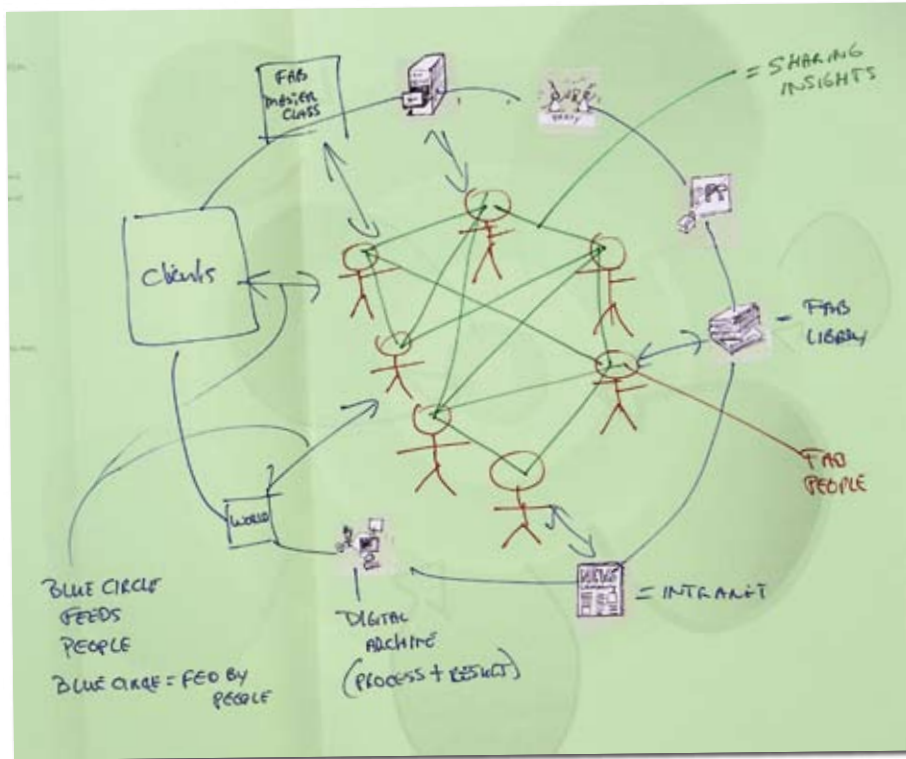 FAB
MASTER
CLASS
= SHARING
INSIGHTS
Clients
= FAB
LIBRARY
FAB
PEOPLE
WORLD
= INTRANET
DIGITAL
ARCHIVE
(PROCESS + RESULT)
BLUE CIRCLE
FEEDS
PEOPLE
BLUE CIRCLE = FED BY
PEOPLE